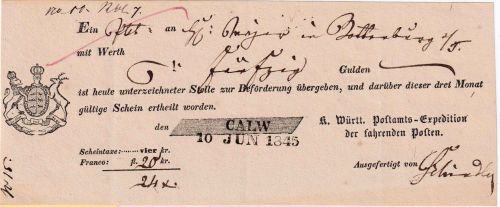 Ein Pkt. an H. Meyer in Rottenburg a/N.
mit Werth
fünfzig Gulden
ist heute unterzeichneter Stelle zur Beförderung übergeben, und darüber dieser drei Monat
gültige Schein ertheilt worden.
den CALW
10 JUN 1845
K. Württ. Postamts-Expedition
der fahrenden Posten.
Scheintaxe: vier kr.
Franco: fl. 20 kr.
24 x.
Ausgefertigt von
No 15.